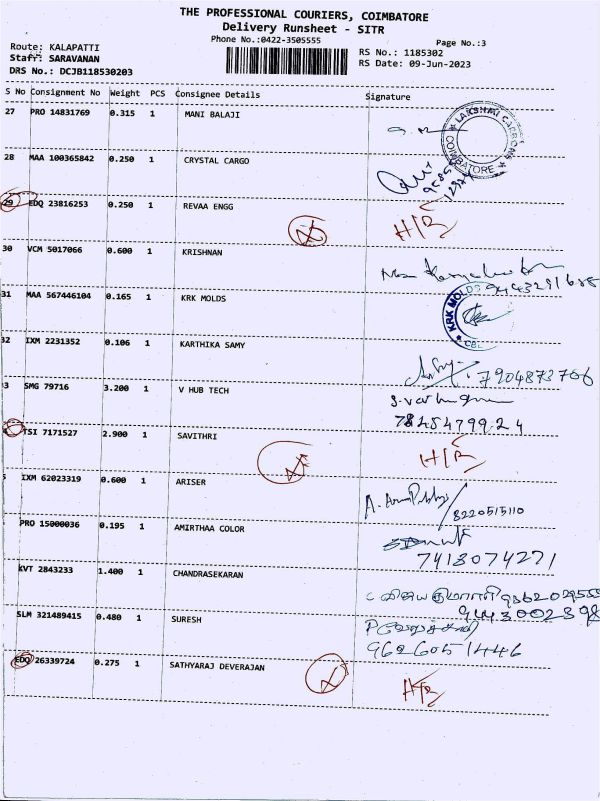 THE PROFESSIONAL COURIERS, COIMBATORE
Delivery Runsheet - SITR
Phone No.:0422-3505555
Page No.:3
Route: KALAPATTI
RS No.: 1185302
Staff: SARAVANAN
RS Date: 09-Jun-2023
DRS No.: DCJB118530203
S No Consignment No Weight PCS Consignee Details Signature
27 PRO 14831769 0.315 1 MANI BALAJI
LAKSHMI COIMBATORE
28 MAA 100365842 0.250 1 CRYSTAL CARGO
29 EDQ 23816253 0.250 1 REVAA ENGG H/R
30 VCM 5017066 0.600 1 KRISHNAN
31 MAA 567446104 0.165 1 KRK MOLDS
KRK MOLDS CBE
32 IXM 2231352 0.106 1 KARTHIKA SAMY 7904873706
3 SMG 79716 3.200 1 V HUB TECH
7845479924
TSI 7171527 2.900 1 SAVITHRI H/R
IXM 62023319 0.600 1 ARISER 8220515110
PRO 15000036 0.195 1 AMIRTHAA COLOR
7413074271
KVT 2843233 1.400 1 CHANDRASEKARAN
9443002398
SLM 321489415 0.480 1 SURESH
9626051446
EDQ 26339724 0.275 1 SATHYARAJ DEVERAJAN H/R